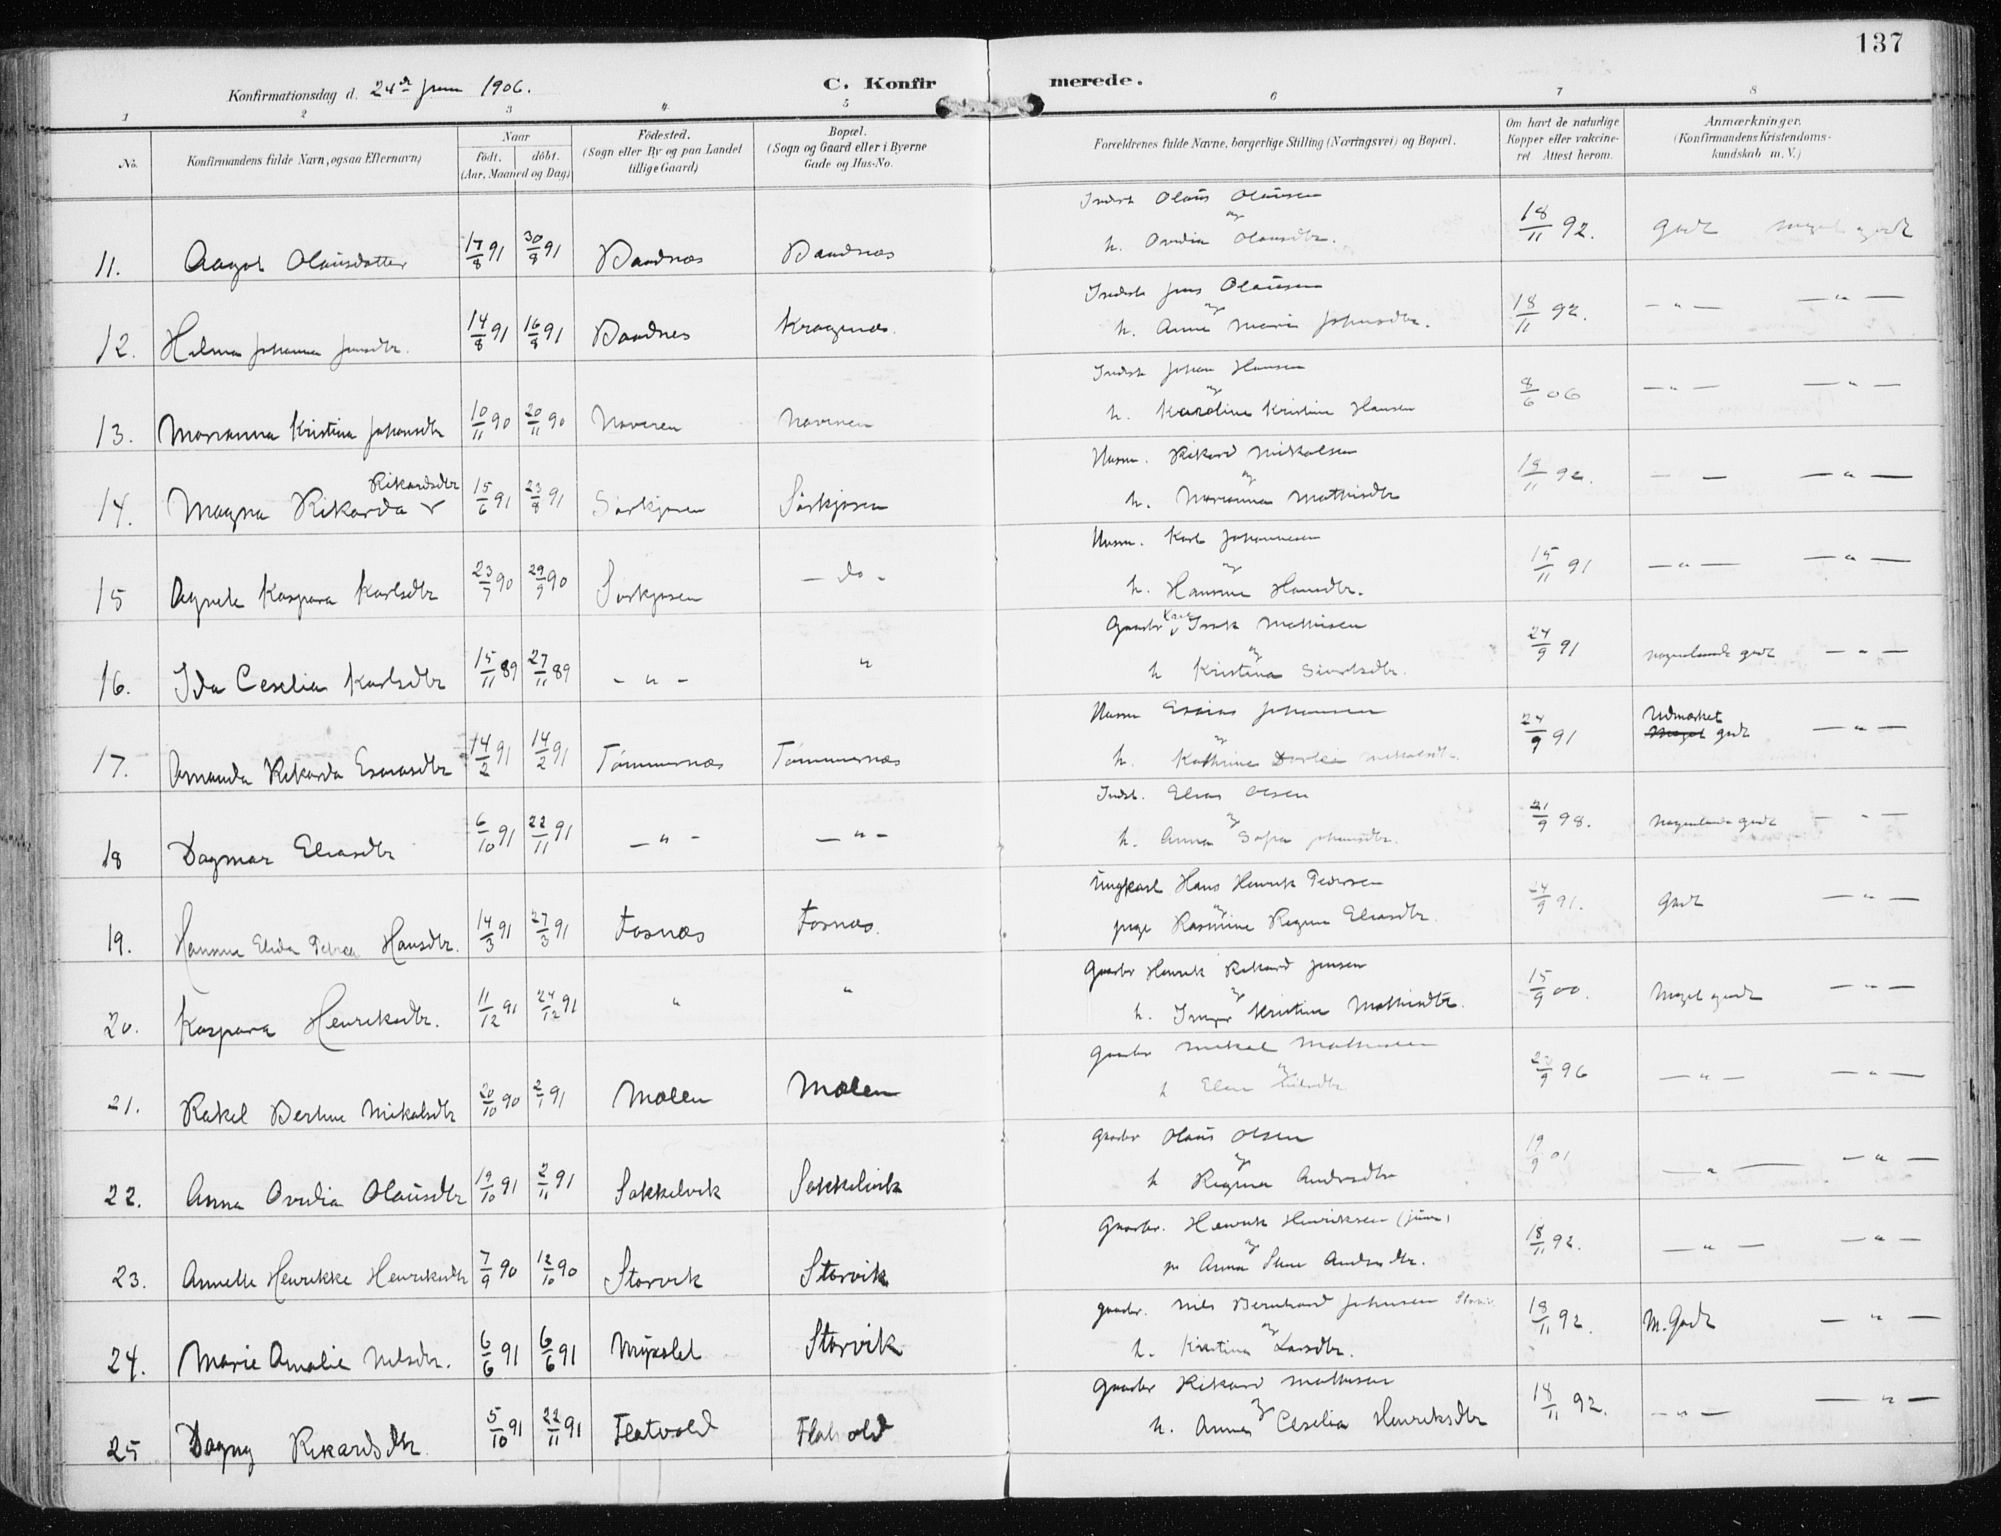 137
Konfirmationsdag d. 24de juni 1906.
C. Konfirmerede.
1 2 3 4 5 6 7 8
No.
Konfirmandens fulde Navn, ogsaa Efternavn)
Naar
födt. döbt.
(Aar, Maaned og Dag)
Födested.
(Sogn eller By og paa Landet
tillige Gaard)
Bopæl.
(Sogn og Gaard eller i Byerne
Gade og Hus-No.
Forældrenes fulde Navne, borgerlige Stilling (Næringsvei) og Bopæl.
Om havt de naturlige
Kopper eller vakcine-
ret Attest herom.
Anmærkninger.
(Konfirmandens Kristendoms-
kundskab m. V.)
Indst Olaus Olausen
og
11. Aagot Olausdatter 17/8 91 30/8 91 Baadnæs Baadnæs h. Ovidia Olausdtr. 18/11 92. Godt meget godt
Indst Jens Olausen
og
12. Helma Johanna Jensdtr. 14/8 91 16/8 91 Baadnes Kragenæs. h. Anne Marie Johansdtr. 18/11 92. — " — — " —
Indst Johan Hansen
og
13. Marianna Kristina Johansdtr 10/11 90 20/11 90 Havnen h. Karoline Kristine Hansen 8/6 06 — " — — " —
Husm. Rikard Mikalsen
og
Rikardsdtr
14. Magna Rikarda v 15/6 91 23/8 91 Sörkjosen Sörkjosen h. Marianna Mathisdtr 18/11 92. — — — " —
Husm. Karl Johannesen
og
15 Agnete Kaspara Karlsdtr 23/7 90 29/9 90 Sörkjosen — do - h. Hansine Hansdtr. 15/11 91 — " — — " —
Gaardbr Karl v Isak Mathisen
og
16. Ida Ceselia Karlsdtr 15/11 89 27/11 89 - " - " h Kristina Siverlsdtr. 24/9 91 nogenlunde godt — " —
Husm Esaias Johansen
og
17. Amanda Rikarda Esaiasdtr 14/2 91 14/2 91 Tömmernæs Tömmernæs h. Kathrine Dorlea Mikalsdtr. 24/9 91 Udmærket Meget godt — " —
Indst. Elias Olsen
og
18 Dagmar Eliasdtr 6/10 91 22/11 91 — " - — " - h. Anna Sofia Johansdtr. 21/9 98. nogenlunde godt — " —
Ungkarl Hans Henrik Pedersen
og
19. Hansine Elida Petrea Hansdtr. 14/3 91 27/3 91 Fosnæs Fosnæs. pige Rasmine Regine Eliasdtr. 24/9 91. Godt — " —
Gaardbr Henrik Rikard Jensen
og
20. Kaspara Henriksdtr. 11/12 91 24/12 91 " " h. Inger Kristine Mathisdtr. 15/9 00. Meget godt — " —
Gaardbr Mikal Mathisen
og
21. Rakel Berhne Mikalsdtr 20/10 90 2/1 91 Molen Molen h Elen Nilsdtr. 23/9 96 — " — — " —
Gaardbr Olaus Olsen
og
22. Anna Ovidia Olausdtr 19/10 91 2/11 91 Sakkelvik Sakkelvik h Regina Andersdtr 19/9 01 — " — — " —
Gaardbr. Henrik Henriksen (jun.)
og
23. Annette Henrikke Henriksdtr 7/9 90 12/10 90 Storvik Storvik Anna Andersdtr. 18/11 92. — " — — " —
gaardbr. Nils Bernhard Johnsen Storvik
og
24. Marie Amalie Nilsdtr. 6/6 91 6/6 91 Storvik h. Kristina Larsdtr. 18/11 92. M. Godt — " —
Gaardbr Rikard Mathisen
og
25 Dagny Rikardsdtr. 5/10 91 22/11 91 Flatvold Flatvold h. Anna Ceselia Henriksdtr 18/11 92. — " — — " —